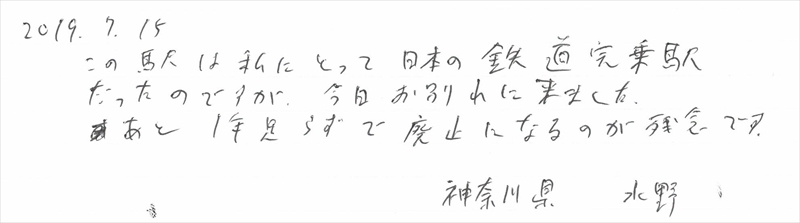 2019. 7. 15
この駅は私にとって日本の鉄道完乗駅
だったのですが、今日お別れに来ました。
あと1年足らずで廃止になるのが残念です。
神奈川県 水野